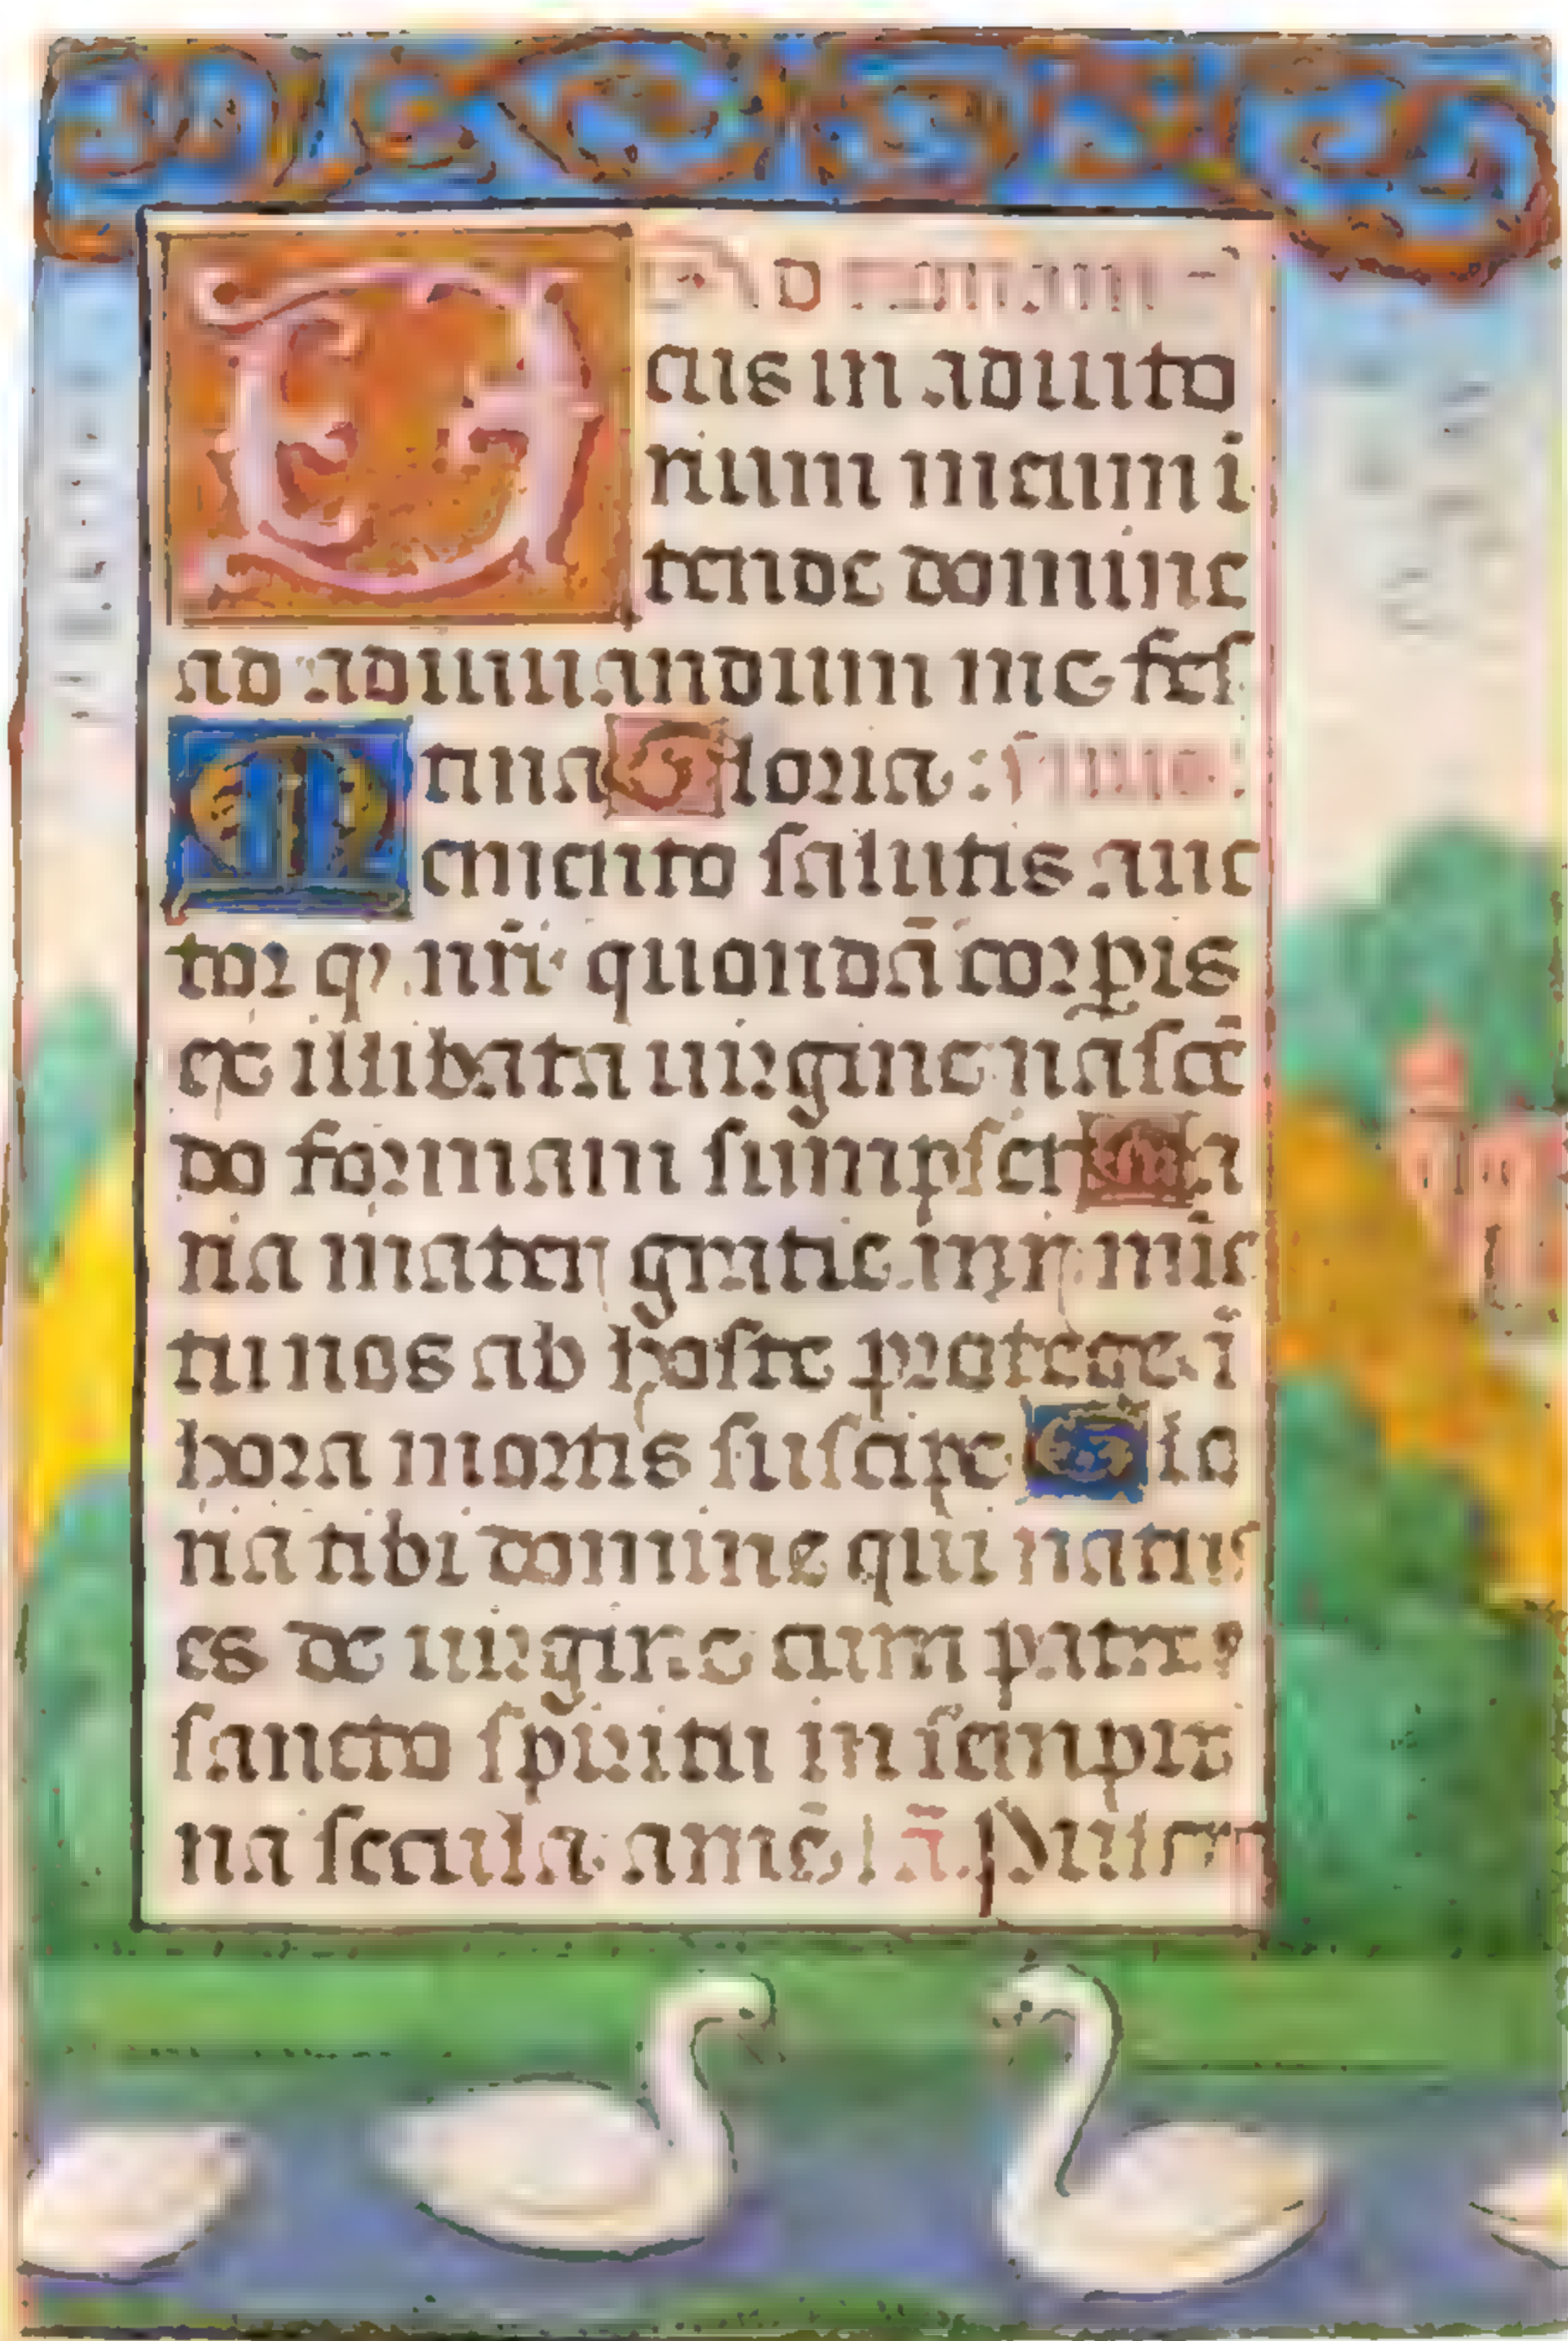 D
eus in adiuto
rium meum i
tende domine
ad adiuuandum me fes
tina Gloria :
Memento salutis auc
tor qͥ nr̄i quondā corpis
ex illibata uirgine nascē
do formam sumpser Ma
ria mater gratie mr̄ mīe
tu nos ab hoste protege ī
hora mortis suscipe Glo
ria tibi domine qui natus
es de uirgine cum patre ⁊
sancto spiritu in sempit
na secula amē ā.